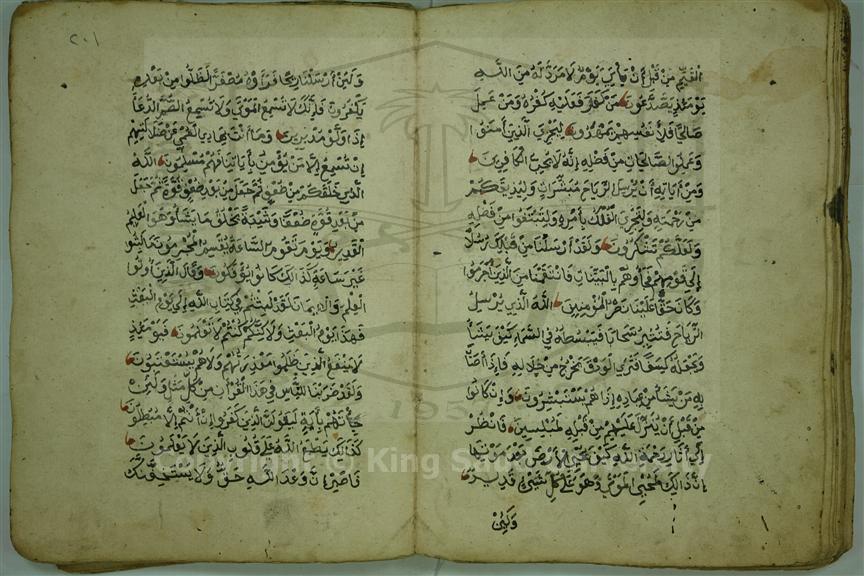 القيم من قبل ان ياتي يوم لا مرد له من الله
يومئذ يصدعون من كفر فعليه كفره ومن عمل
صالحا فلأنفسهم يمهدون ليجزي الذين امنوا
وعملوا الصالحات من فضله إنه لا يحب الكافرين
ومن اياته أن يرسل الرياح مبشرات وليذيقكم
من رحمته ولتجري الفلك بأمره ولتبتغوا من فضله
ولعلكم تشكرون ولقد أرسلنا من قبلك رسلا
إلى قومهم فجاؤهم بالبينات فانتقمنا من الذين أجرموا
وكان حقا علينا نصر المؤمنين الله الذي يرسل
الرياح فتثير سحابا فيبسطه في السماء كيف يشاء
ويجعله كسفا فترى الودق يخرج من خلاله فإذا أصاب
به من يشاء من عباده إذا هم يستبشرون وإن كانوا
من قبل أن ينزل عليهم من قبله لمبلسين فانظر
إلى آثار رحمة الله كيف يحيي الأرض بعد موتها
إن ذالك لمحيي الموتى وهو على كل شيء قدير
ولئن
٢٠١
ولئن أرسلنا ريحا فرأوه مصفرا لظلوا من بعده
يكفرون فإنك لا تسمع الموتى ولا تسمع الصم الدعاء
إذا ولوا مدبرين وما أنت بهادي العمي عن ضلالتهم
إن تسمع إلا من يؤمن بآياتنا فهم مسلمون الله
الذي خلقكم من ضعف ثم جعل من بعد ضعف قوة ثم جعل
من بعد قوة ضعفا وشيبة يخلق ما يشاء وهو العليم
القدير ويوم تقوم الساعة يقسم المجرمون ما لبثوا
غير ساعة كذالك كانوا يؤفكون وقال الذين أوتوا
العلم والايمان لقد لبثتم في كتاب الله إلى يوم البعث
فهذا يوم البعث ولاكنكم كنتم لا تعلمون فيومئذ
لا ينفع الذين ظلموا معذرتهم ولا هم يستعتبون
ولقد ضربنا للناس في هذا القرآن من كل مثل ولئن
جئتهم بآية ليقولن الذين كفروا إن أنتم إلا مبطلون
كذالك يطبع الله على قلوب الذين لا يعلمون
فاصبر إن وعد الله حق ولا يستخفنك
Copyright © King Saud University